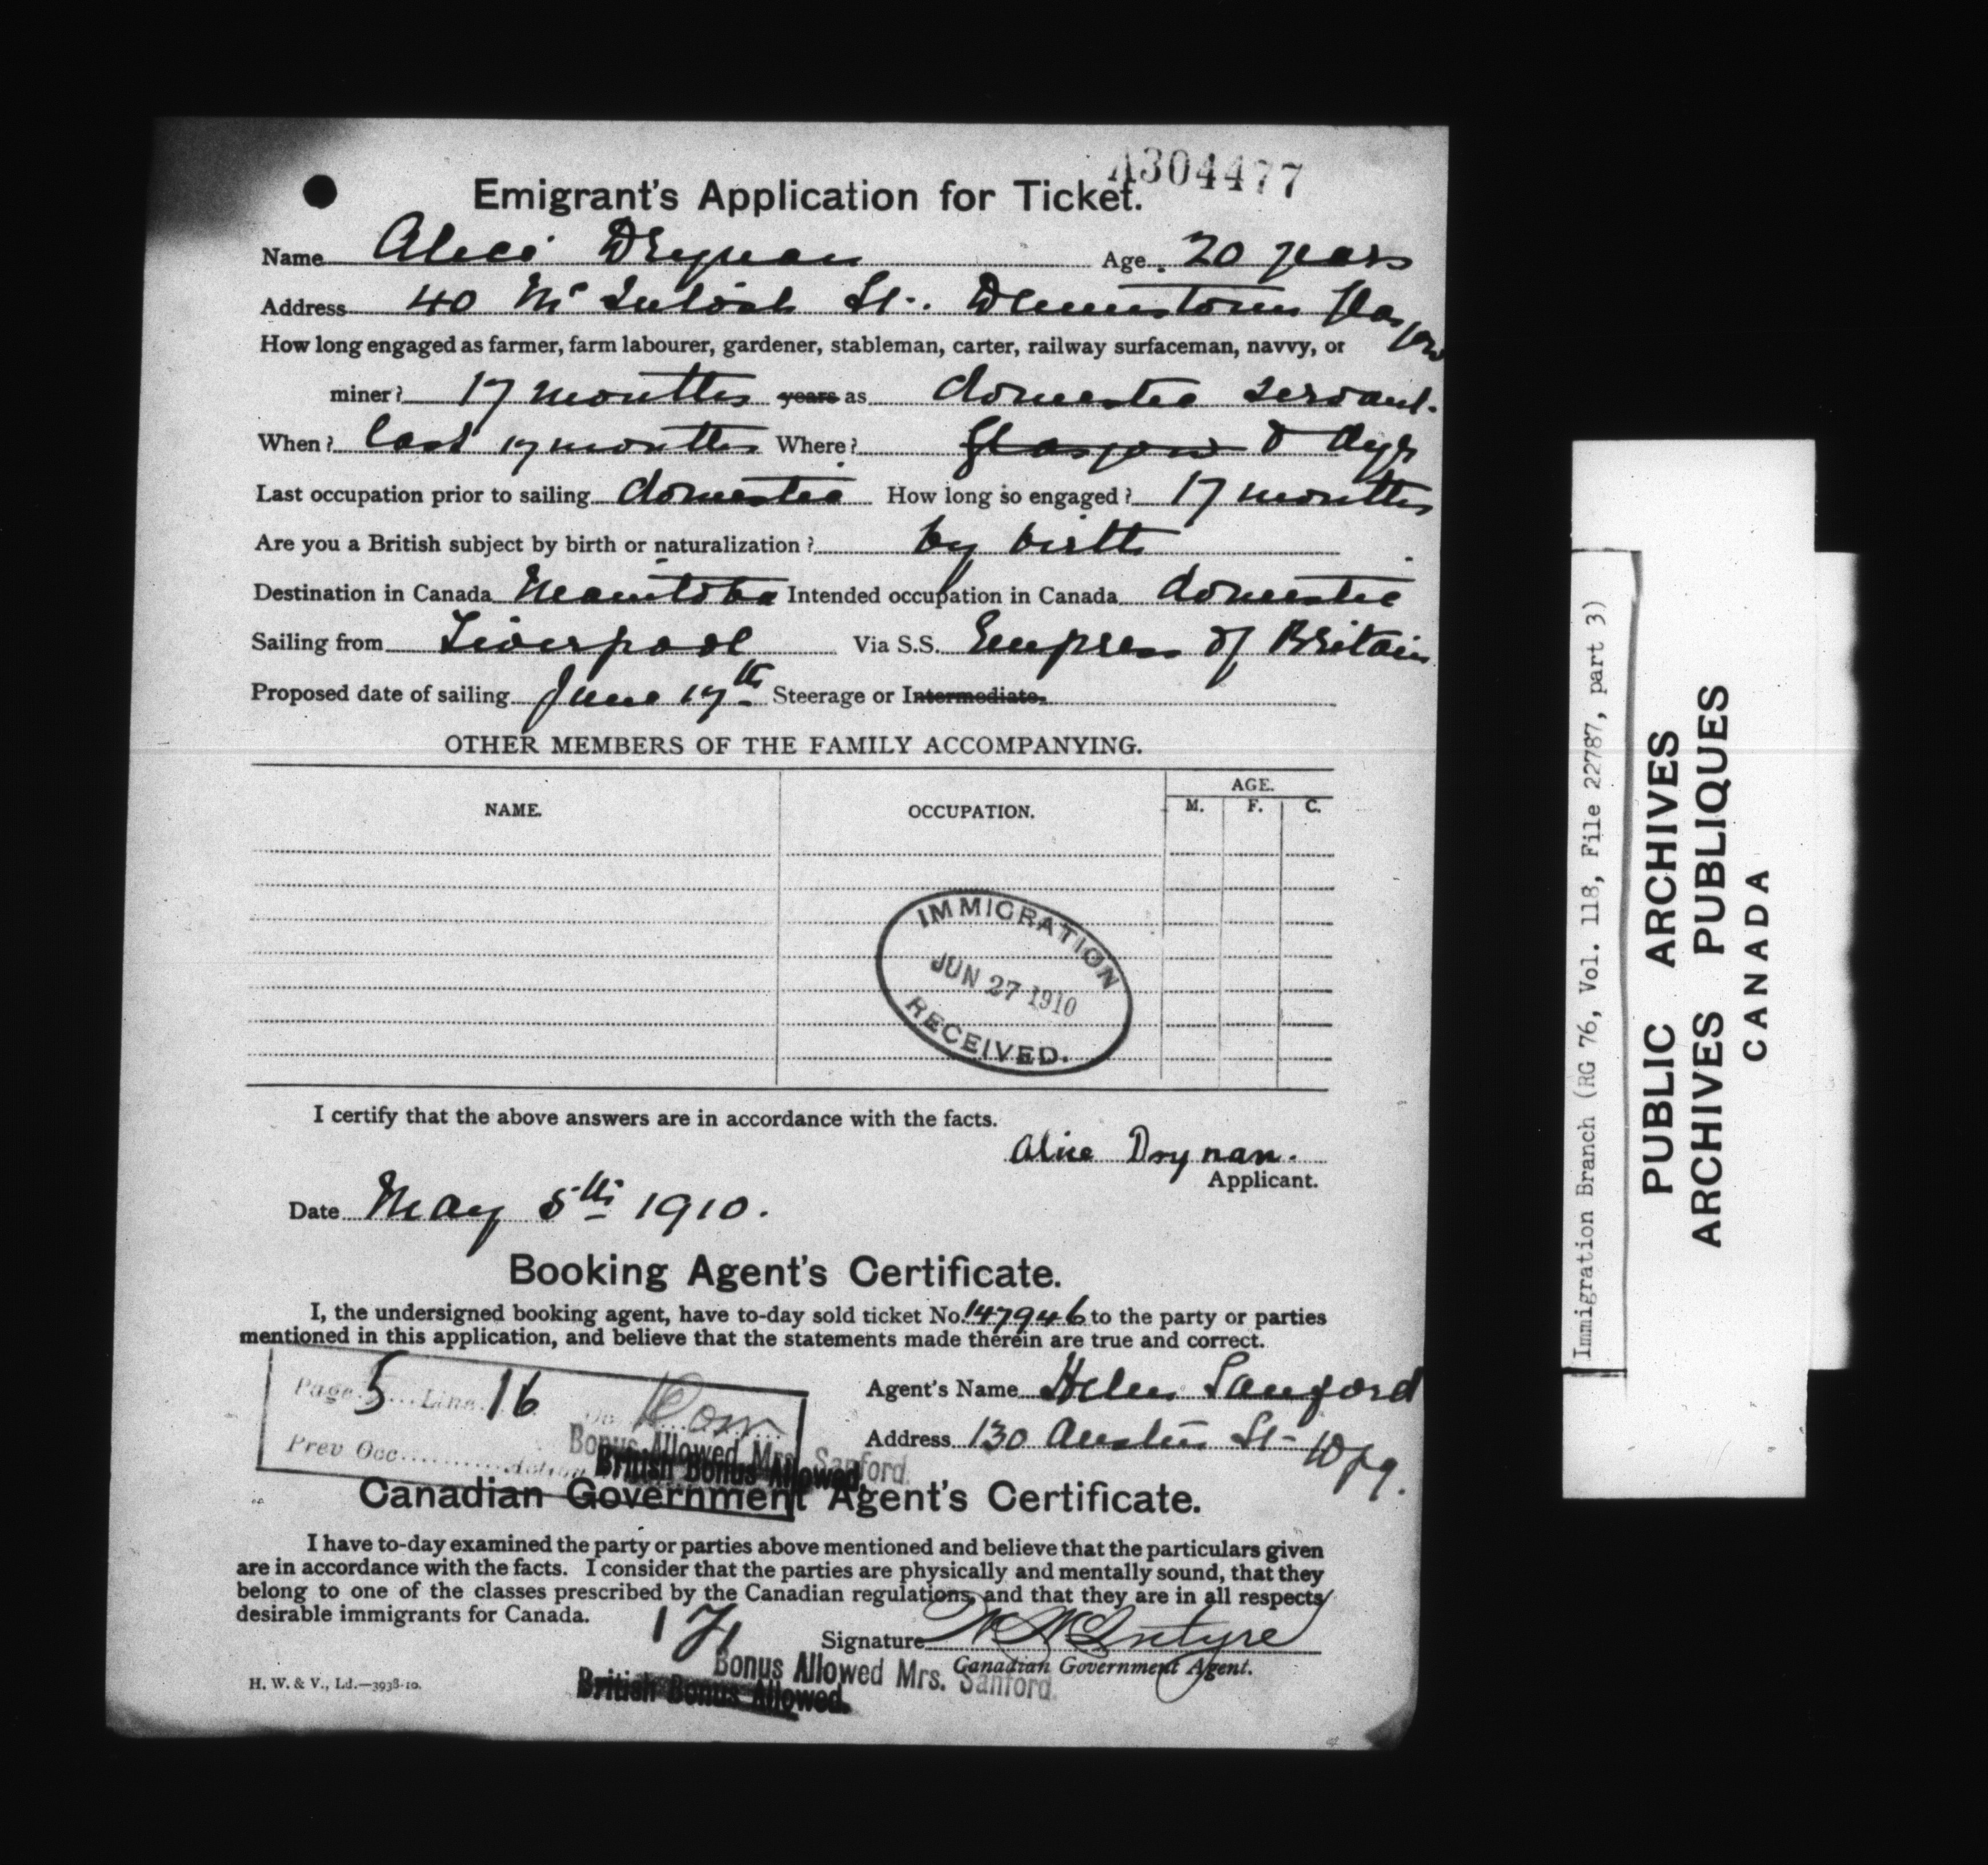 A304477
Emigrant's Application for Ticket.
Name Alice Drynan Age 20 years
Address 40 McIntosh St. Dennistoun Glasgow
How long engaged as farmer, farm labourer, gardener, stableman, carter, railway surfaceman, navvy, or
miner? 17 months years as domestic servant.
When? last 17 months Where? Glasgow & Ayr
Last occupation prior to sailing domestic How long so engaged? 17 months
Are you a British subject by birth or naturalization? by birth
Destination in Canada Manitoba Intended occupation in Canada domestic
Sailing from Liverpool Via S.S. Empress of Britain
Proposed date of sailing June 17th Steerage or Intermediate.
OTHER MEMBERS OF THE FAMILY ACCOMPANYING.
NAME. OCCUPATION. AGE.
M. F. C.
IMMIGRATION
JUN 27 1910
RECEIVED.
I certify that the above answers are in accordance with the facts.
Alice Drynan.
Applicant.
Date May 5th 1910.
Booking Agent's Certificate.
I, the undersigned booking agent, have to-day sold ticket No. 147946 to the party or parties
mentioned in this application, and believe that the statements made therein are true and correct.
Page 5 Line 16
Agent's Name Helen Sanford
Prev Occ
Address 130 Austin St- Wpg.
Bonus Allowed Mrs. Sanford.
British Bonus Allowed.
Canadian Government Agent's Certificate.
I have to-day examined the party or parties above mentioned and believe that the particulars given
are in accordance with the facts. I consider that the parties are physically and mentally sound, that they
belong to one of the classes prescribed by the Canadian regulations, and that they are in all respects
desirable immigrants for Canada.
Signature W McIntyre
Canadian Government Agent.
Bonus Allowed Mrs. Sanford.
British Bonus Allowed.
H. W. & V., Ld.—3938-10.
Immigration Branch (RG 76, Vol. 118, File 22787, part 3)
PUBLIC ARCHIVES
ARCHIVES PUBLIQUES
CANADA